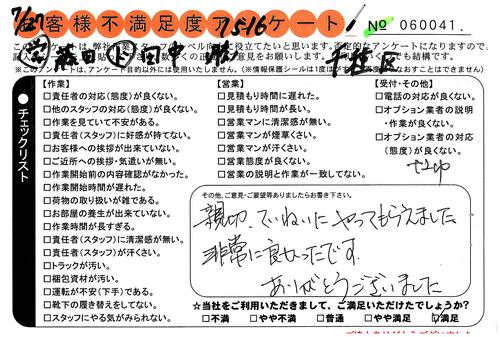 7/27
お客様不満足度アンケート
No 060041
チェックリスト
【作業】
□責任者の対応(態度)が良くない。
□他のスタッフの対応(態度)が良くない。
□作業を見ていて不安がある。
□責任者(スタッフ)に好感が持てない。
□お客様への挨拶が出来ていない。
□ご近所への挨拶・気遣いが無い。
□作業開始前の内容確認がなかった。
□作業開始時間が遅れた。
□荷物の取り扱いが雑である。
□お部屋の養生が出来ていない。
□作業時間が長すぎる。
□責任者(スタッフ)に清潔感が無い。
□責任者(スタッフ)が汗くさい。
□トラックが汚い。
□梱包資材が汚い。
□運転が安全(下手)である。
□靴下の履き替えをしてない。
□スタッフにやる気がみられない。
【営業】
□見積もり時間に遅れた。
□見積もり時間が長い。
□営業マンに清潔感が無い。
□営業マンが煙草くさい。
□営業マンが汗くさい。
□営業態度が良くない。
□営業の説明と作業が一致してない。
【受付・その他】
□電話の対応が良くない。
□オプション業者の説明
・作業が良くない。
□オプション業者の対応
(態度)が良くない。
その他、ご意見・ご要望等ありましたらお書き下さい。
親切、ていねいにやってもらえました
非常に良かったです。
ありがとうございました
☆当社をご利用いただきまして、ご満足いただけたでしょうか?
□不満 □やや不満 □普通 □やや満足 ☑満足